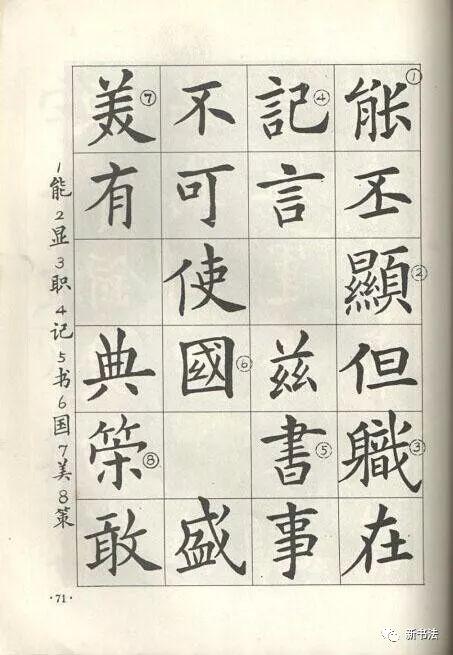 能①丕顯②但職③在
記④言兹書⑤事
不可使國⑥盛
美⑦有典策⑧敢
1能2显3职4记5书6国7美8策
·71·
新书法